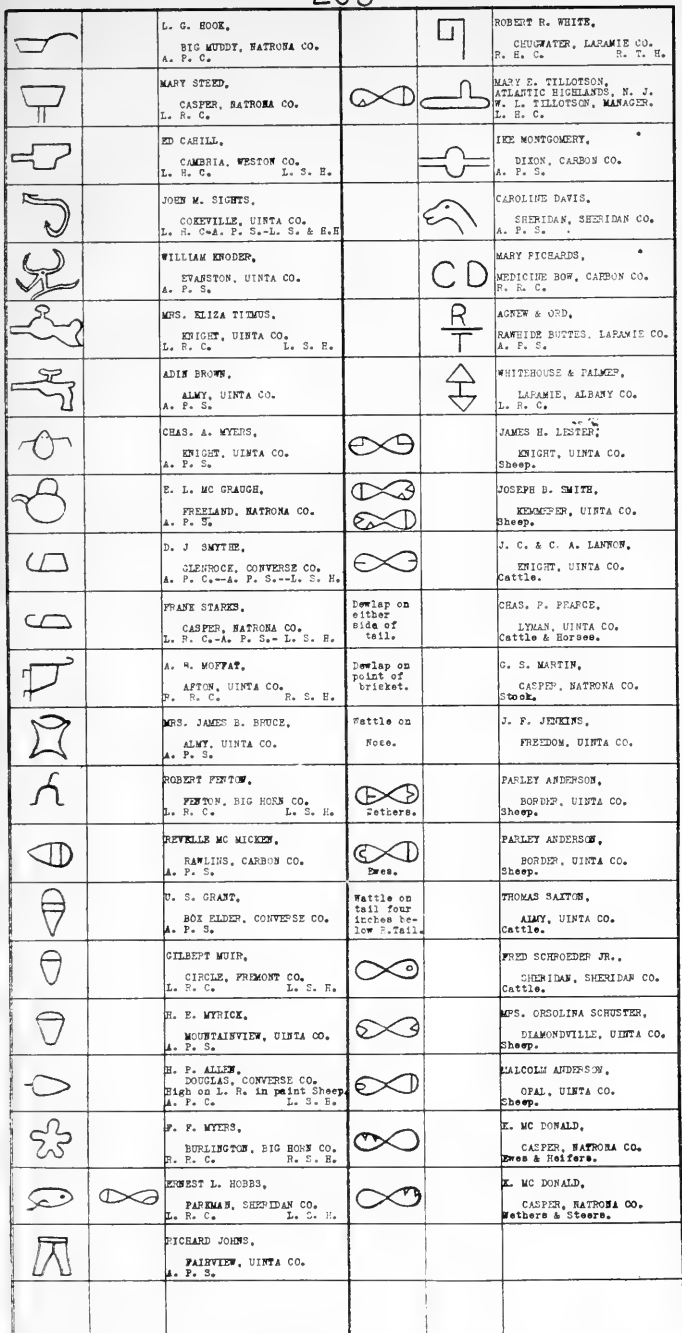 L. G. HOOK,
BIG MUDDY, NATRONA CO.
A. P. C.
MARY STEED,
CASPER, NATRONA CO.
L. R. C.
ED CAHILL,
CAMBRIA, WESTON CO.
L. H. C. L. S. H.
JOHN M. SIGHTS,
COKEVILLE, UINTA CO.
L. H. C-A. P. S.-L. S. & H.H
WILLIAM KNODER,
EVANSTON, UINTA CO.
A. P. S.
MRS. ELIZA TITMUS,
KNIGHT, UINTA CO.
L. R. C. L. S. H.
ADIN BROWN,
ALMY, UINTA CO.
A. P. S.
CHAS. A. MYERS,
KNIGHT, UINTA CO.
A. P. S.
E. L. MC GRAUGH,
FREELAND, NATRONA CO.
A. P. S.
D. J SMYTHE,
GLENROCK, CONVERSE CO.
A. P. C.--A. P. S.--L. S. H.
FRANK STARKS,
CASPER, NATRONA CO.
L. R. C.-A. P. S.- L. S. H.
A. R. MOFFAT,
AFTON, UINTA CO.
R. R. C. R. S. H.
MRS. JAMES B. BRUCE,
ALMY, UINTA CO.
A. P. S.
ROBERT FENTON,
FENTON, BIG HORN CO.
L. R. C. L. S. H.
REVELLE MC MICKEN,
RAWLINS, CARBON CO.
A. P. S.
U. S. GRANT,
BOX ELDER, CONVERSE CO.
A. P. S.
GILBERT MUIR,
CIRCLE, FREMONT CO.
L. R. C. L. S. H.
H. E. MYRICK,
MOUNTAINVIEW, UINTA CO.
A. P. S.
H. P. ALLEN,
DOUGLAS, CONVERSE CO.
High on L. R. in paint Sheep
A. P. C. L. S. H.
F. F. MYERS,
BURLINGTON, BIG HORN CO.
R. R. C. R. S. H.
ERNEST L. HOBBS,
PARKMAN, SHERIDAN CO.
L. R. C. L. S. H.
RICHARD JOHNS,
FAIRVIEW, UINTA CO.
A. P. S.
ROBERT R. WHITE,
CHUGWATER, LARAMIE CO.
R. H. C. R. T. H.
MARY E. TILLOTSON,
ATLANTIC HIGHLANDS, N. J.
W. L. TILLOTSON, MANAGER.
L. H. C.
IKE MONTGOMERY,
DIXON, CARBON CO.
A. P. S.
CAROLINE DAVIS,
SHERIDAN, SHERIDAN CO.
A. P. S.
C D
MARY RICHARDS,
MEDICINE BOW, CARBON CO.
R. R. C.
R
T
AGNEW & ORD,
RAWHIDE BUTTES, LARAMIE CO.
A. P. S.
WHITEHOUSE & PALMER,
LARAMIE, ALBANY CO.
L. R. C.
JAMES H. LESTER,
KNIGHT, UINTA CO.
Sheep.
JOSEPH D. SMITH,
KEMMERER, UINTA CO.
Sheep.
J. C. & C. A. LANNON,
KNIGHT, UINTA CO.
Cattle.
Dewlap on
either
side of
tail.
CHAS. P. PEARCE,
LYMAN, UINTA CO.
Cattle & Horses.
Dewlap on
point of
brisket.
G. S. MARTIN,
CASPER, NATRONA CO.
Stock.
Wattle on
Nose.
J. F. JENKINS,
FREEDOM, UINTA CO.
Wethers.
PARLEY ANDERSON,
BORDER, UINTA CO.
Sheep.
Ewes.
PARLEY ANDERSON,
BORDER, UINTA CO.
Sheep.
Wattle on
tail four
inches be-
low R.Tail.
THOMAS SAXTON,
ALMY, UINTA CO.
Cattle.
FRED SCHROEDER JR.,
SHERIDAN, SHERIDAN CO.
Cattle.
MRS. ORSOLINA SCHUSTER,
DIAMONDVILLE, UINTA CO.
Sheep.
MALCOLM ANDERSON,
OPAL, UINTA CO.
Sheep.
K. MC DONALD,
CASPER, NATRONA CO.
Ewes & Heifers.
K. MC DONALD,
CASPER, NATRONA CO.
Wethers & Steers.